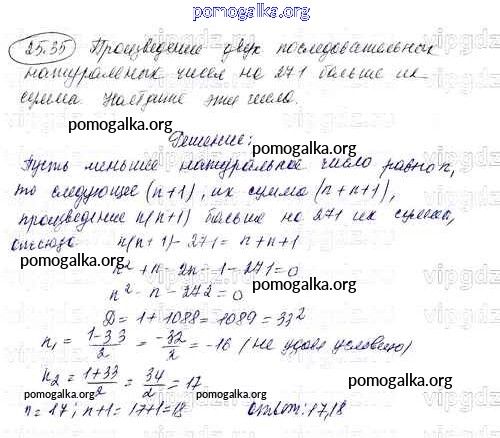 pomogalka.org
25.35 Произведение двух последовательных
натуральных чисел на 271 больше их
суммы. Найдите эти числа.
pomogalka.org
Решение:
Пусть меньшее натуральное число равно n,
pomogalka.org
то следующее (n+1), их сумма (n+n+1),
произведение n(n+1) больше на 271 их суммы,
отсюда n(n+1)-271=n+n+1
pomogalka.org
n²+n-2n-1-271=0
n²-n-272=0
pomogalka.org
D=1+1088=1089=33²
n₁ = (1-33)/2 = -32/2 = -16 (не удовл условию)
pomogalka.org
n₂ = (1+33)/2 = 34/2 = 17
pomogalka.org
n=17; n+1=17+1=18 Ответ: 17,18
pomogalka.org